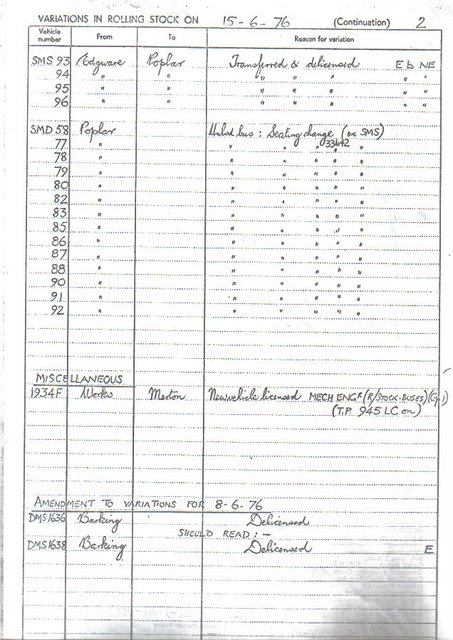 VARIATIONS IN ROLLING STOCK ON 15-6-76 (Continuation) 2
Vehicle number From To Reason for variation
SMS 93 Edgware Poplar Transferred & delicensed E b NE
94 " " " " " " "
95 " " " " " " "
96 " " " " " " "
SMD 58 Poplar Unlicd bus: Seating change (ex SMS)
77 " " " " 33642 "
78 " " " " " "
79 " " " " " "
80 " " " " " "
82 " " " " " "
83 " " " " " "
85 " " " " " "
86 " " " " " "
87 " " " " " "
88 " " " " " "
90 " " " " " "
91 " " " " " "
92 " " " " " "
MISCELLANEOUS
1934F Works Merton New vehicle licensed MECH ENGR (R/STOCK-BUSES) (Gp 1)
(T.P. 945 LC on)
AMENDMENT TO VARIATIONS FOR 8-6-76
DMS 1636 Barking Delicensed
SHOULD READ:-
DMS 1638 Barking Delicensed E